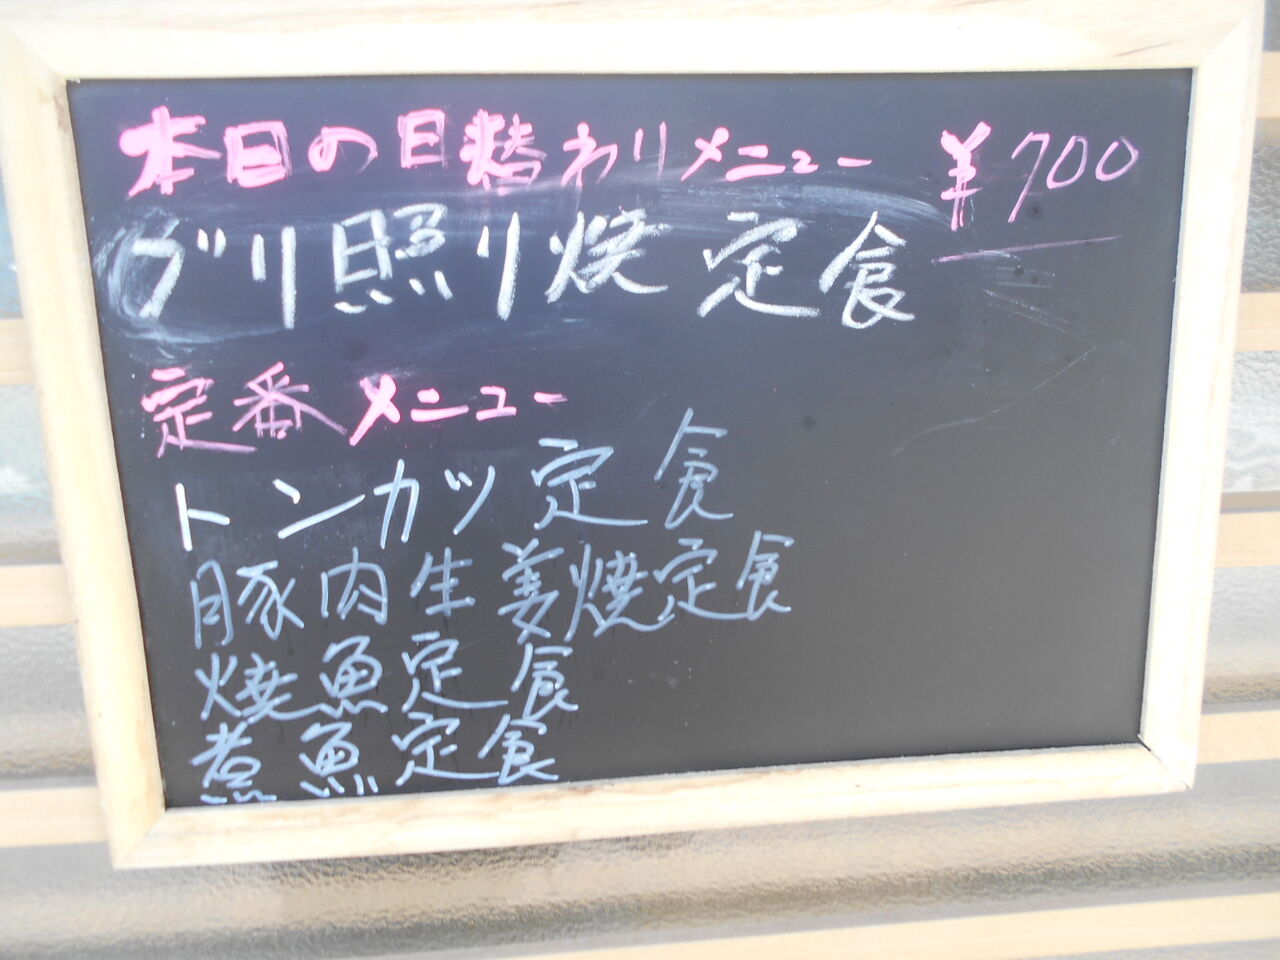 本日の日替わりメニュー ¥700
ブリ照り焼定食
定番メニュー
トンカツ定食
豚肉生姜焼定食
焼魚定食
煮魚定食